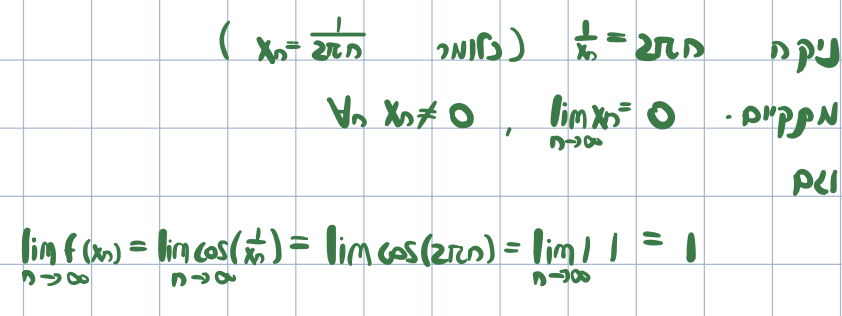 ניקח 1/xₙ = 2πn (כלומר xₙ = 1/2πn)
מתקיים. lim n→∞ xₙ = 0 , ∀n xₙ ≠ 0
וגם
lim n→∞ f(xₙ) = lim n→∞ cos(1/xₙ) = lim cos(2πn) = lim n→∞ 1 1 = 1